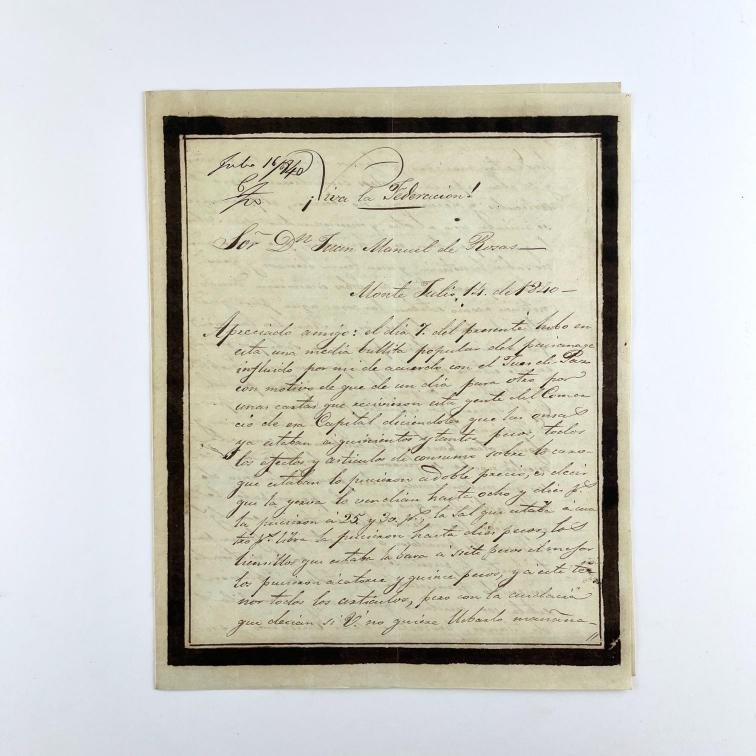 Julio 16/840
¡Viva la Federacion!
Sor. Dn. Juan Manuel de Rosas—
Monte Julio, 14. de 1840—
Apreciado amigo: el dia 7. del presente hubo en
esta una media bullita popular del paisanage
influido por mi de acuerdo con el Juez de Paz
con motivo de que de un dia para otro por
unas cartas que recivieron esta gente del Comer
cio de esa Capital diciendoles que las onsas
ya estaban a quinientos y tantos pesos, todos
los efectos y articulos de consumo sobre lo caro
que estaban lo pusieron a doble precio, es decir
que la yerva lo vendian hasta ocho y diez p.s
la pusieron á 25. y 30. p.s, la sal que estaba a cua
tro p.s libra la pusieron hasta diez pesos, los
liensillos que estaba la bara á siete pesos el mejor
los pusieron a catorse y quince pesos, y á este te
nor todos los articulos, pero con la
que decian si V. no quiere llebarlo mañana